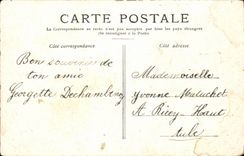 CARTE POSTALE
La Correspondance au recto n'est pas acceptée par tous les pays étrangers
(Se renseigner à la Poste)
Côté correspondance
Côté adresse
Bon souvenir de
ton amie
Georgette Dechambenoy
Mademoiselle
Yvonne Maluchet
At Ricey-Haut
Aube